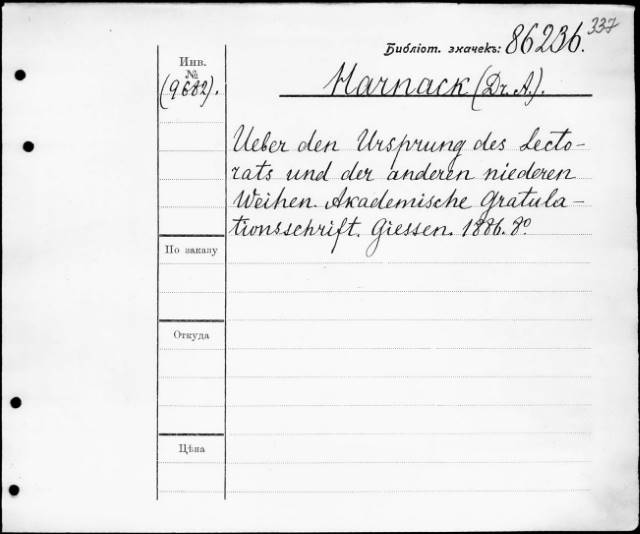 337
Библіот. значекъ: 86236.
Инв.
№
(9682).
Harnack (Dr. A.).
Ueber den Ursprung des Lecto-
rats und der anderen niederen
Weihen. Akademische Gratula-
tionsschrift. Giessen. 1886. 8º
По заказу
Откуда
Цѣна